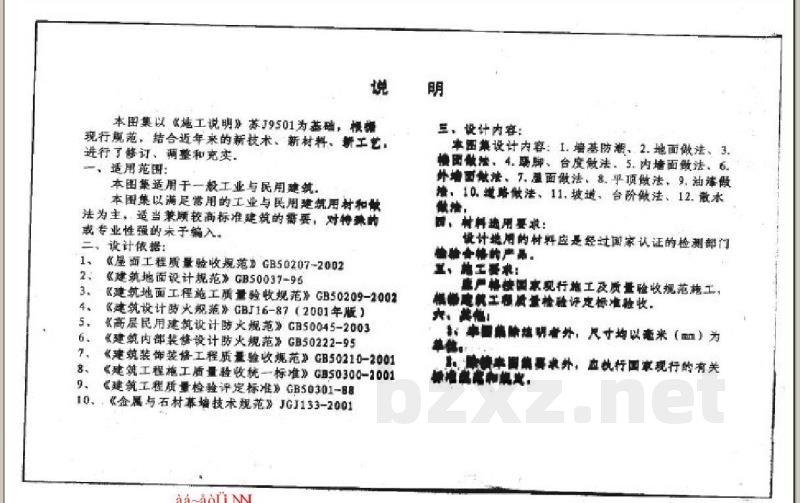 说 明
本图集以《施工说明》苏J9501为基础，根据
现行规范，结合近年来的新技术、新材料、新工艺，
进行了修订、调整和充实。
一、适用范围：
本图集适用于一般工业与民用建筑。
本图集以满足常用的工业与民用建筑用材和做
法为主，适当兼顾较高标准建筑的需要，对特殊的
或专业性强的未予编入。
二、设计依据：
1、《屋面工程质量验收规范》GB50207-2002
2、《建筑地面设计规范》GB50037-96
3、《建筑地面工程施工质量验收规范》GB50209-2002
4、《建筑设计防火规范》GBJ16-87（2001年版）
5、《高层民用建筑设计防火规范》GB50045-2003
6、《建筑内部装修设计防火规范》GB50222-95
7、《建筑装饰装修工程质量验收规范》GB50210-2001
8、《建筑工程施工质量验收统一标准》GB50300-2001
9、《建筑工程质量检验评定标准》GB50301-88
10、《金属与石材幕墙技术规范》JGJ133-2001
三、设计内容：
本图集设计内容：1.墙基防潮、2.地面做法、3.
楼面做法、4.踢脚、台度做法、5.内墙面做法、6.
外墙面做法、7.屋面做法、8.平顶做法、9.油漆做
法、10.道路做法、11.坡道、台阶做法、12.散水
做法。
四、材料选用要求：
设计选用的材料应是经过国家认证的检测部门
检验合格的产品。
五、施工要求：
应严格按国家现行施工及质量验收规范施工，
根据建筑工程质量检验评定标准验收。
六、其他：
1、本图集除注明者外，尺寸均以毫米（mm）为
单位。
2、除按本图集要求外，应执行国家现行的有关
标准规范和规定。
bzxz.net